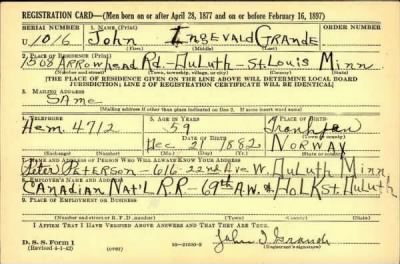 REGISTRATION CARD—(Men born on or after April 28, 1877 and on or before February 16, 1897)
SERIAL NUMBER 1. NAME (Print) ORDER NUMBER
U 1016 John Ingevald Grande
(First) (Middle) (Last)
2. PLACE OF RESIDENCE (Print)
1508 Arrowhead Rd - Duluth - St. Louis Minn
(Number and street) (Town, township, village, or city) (County) (State)
[THE PLACE OF RESIDENCE GIVEN ON THE LINE ABOVE WILL DETERMINE LOCAL BOARD
JURISDICTION; LINE 2 OF REGISTRATION CERTIFICATE WILL BE IDENTICAL]
3. MAILING ADDRESS
Same
[Mailing address if other than place indicated on line 2. If same insert word same]
4. TELEPHONE 5. AGE IN YEARS 6. PLACE OF BIRTH
Hem. 4712 59
DATE OF BIRTH
Dec 21 1882 Norway
7. NAME AND ADDRESS OF PERSON WHO WILL ALWAYS KNOW YOUR ADDRESS
Peter Peterson - 616 22nd Ave W. Duluth Minn
8. EMPLOYER'S NAME AND ADDRESS
Canadian Nat'l R.R - 69th A.W. &
9. PLACE OF EMPLOYMENT OR BUSINESS
(Number and street or R. F. D. number) (Town) (County) (State)
I AFFIRM THAT I HAVE VERIFIED ABOVE ANSWERS AND THAT THEY ARE TRUE.
D. S. S. Form 1
(Revised 4-1-42) (over) John I Grande
(Registrant's signature)